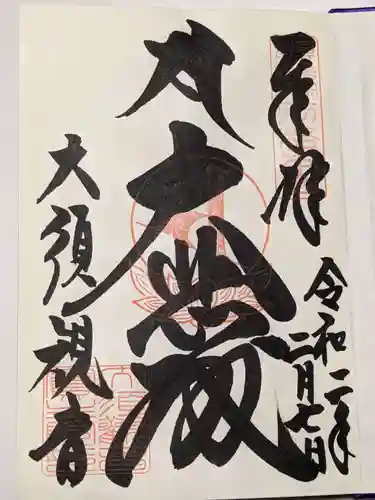 奉拝
令和二年二月七日
大悲殿
大須観音